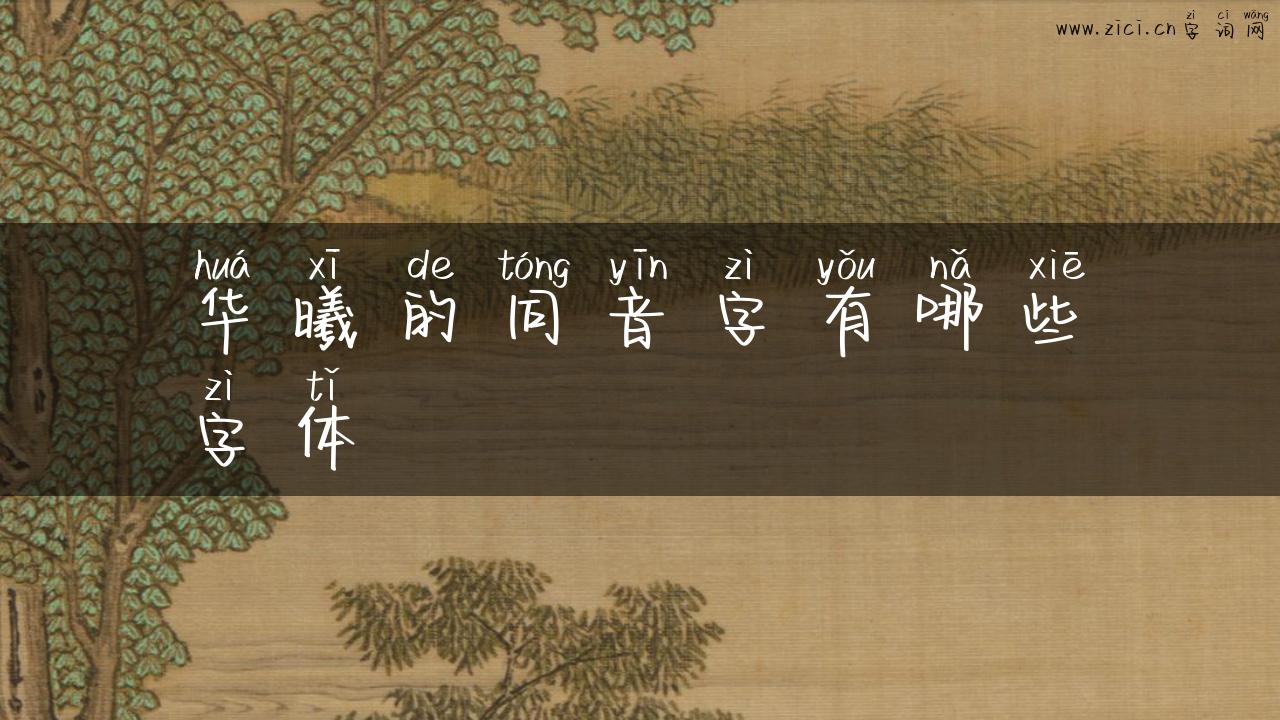 zì cí wǎng
www.zici.cn 字词网
huá xī de tóng yīn zì yǒu nǎ xiē
华曦的同音字有哪些
zì tǐ
字体